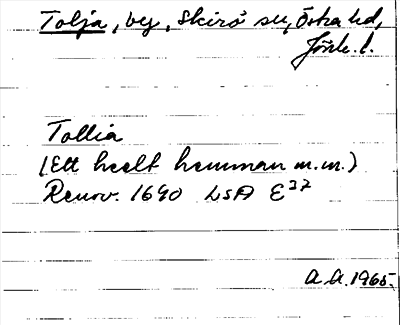 Tolja, by, Skirö sn, Östra hd,
Jönk. l.
Tollia
(Ett heelt hemman m.m.)
Renov. 1690 LSA E 37
A.A. 1965.